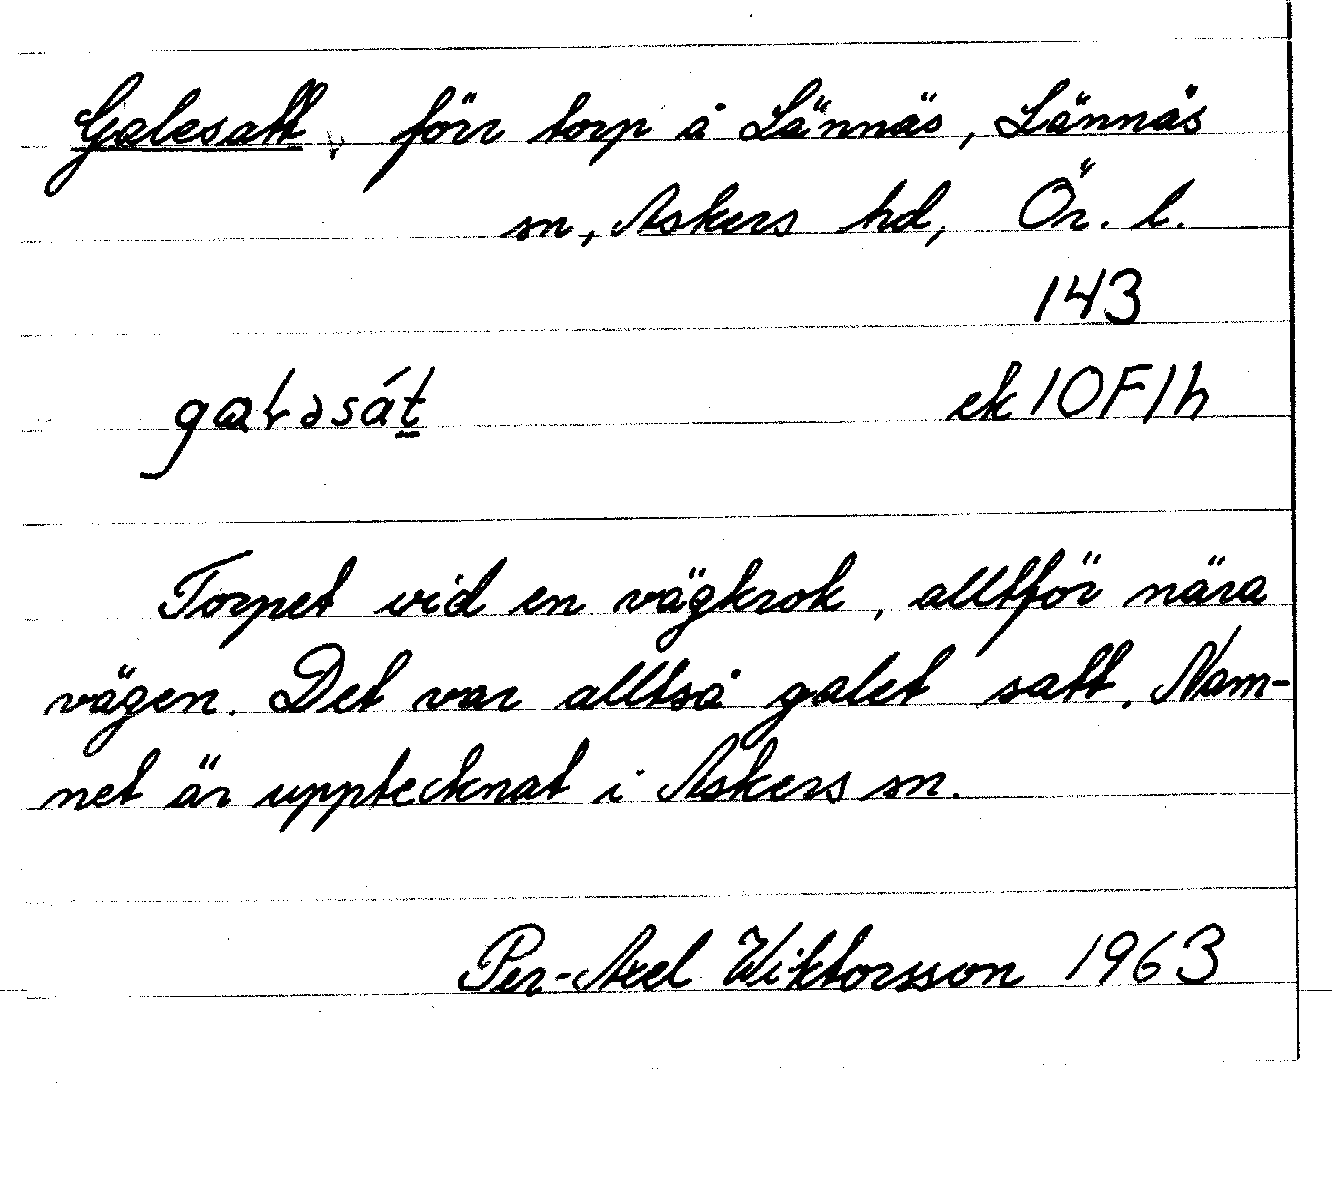 Galesatt, förr torp å Lännäs, Lännäs
sn, Askers hd, Ör. l.
143
gaɫəsát̲ ek 10F1h
Torpet vid en vägkrok, alltför nära
vägen. Det var alltså galet satt. Nam-
net är upptecknat i Askers sn.
Per-Axel Wiktorsson 1963